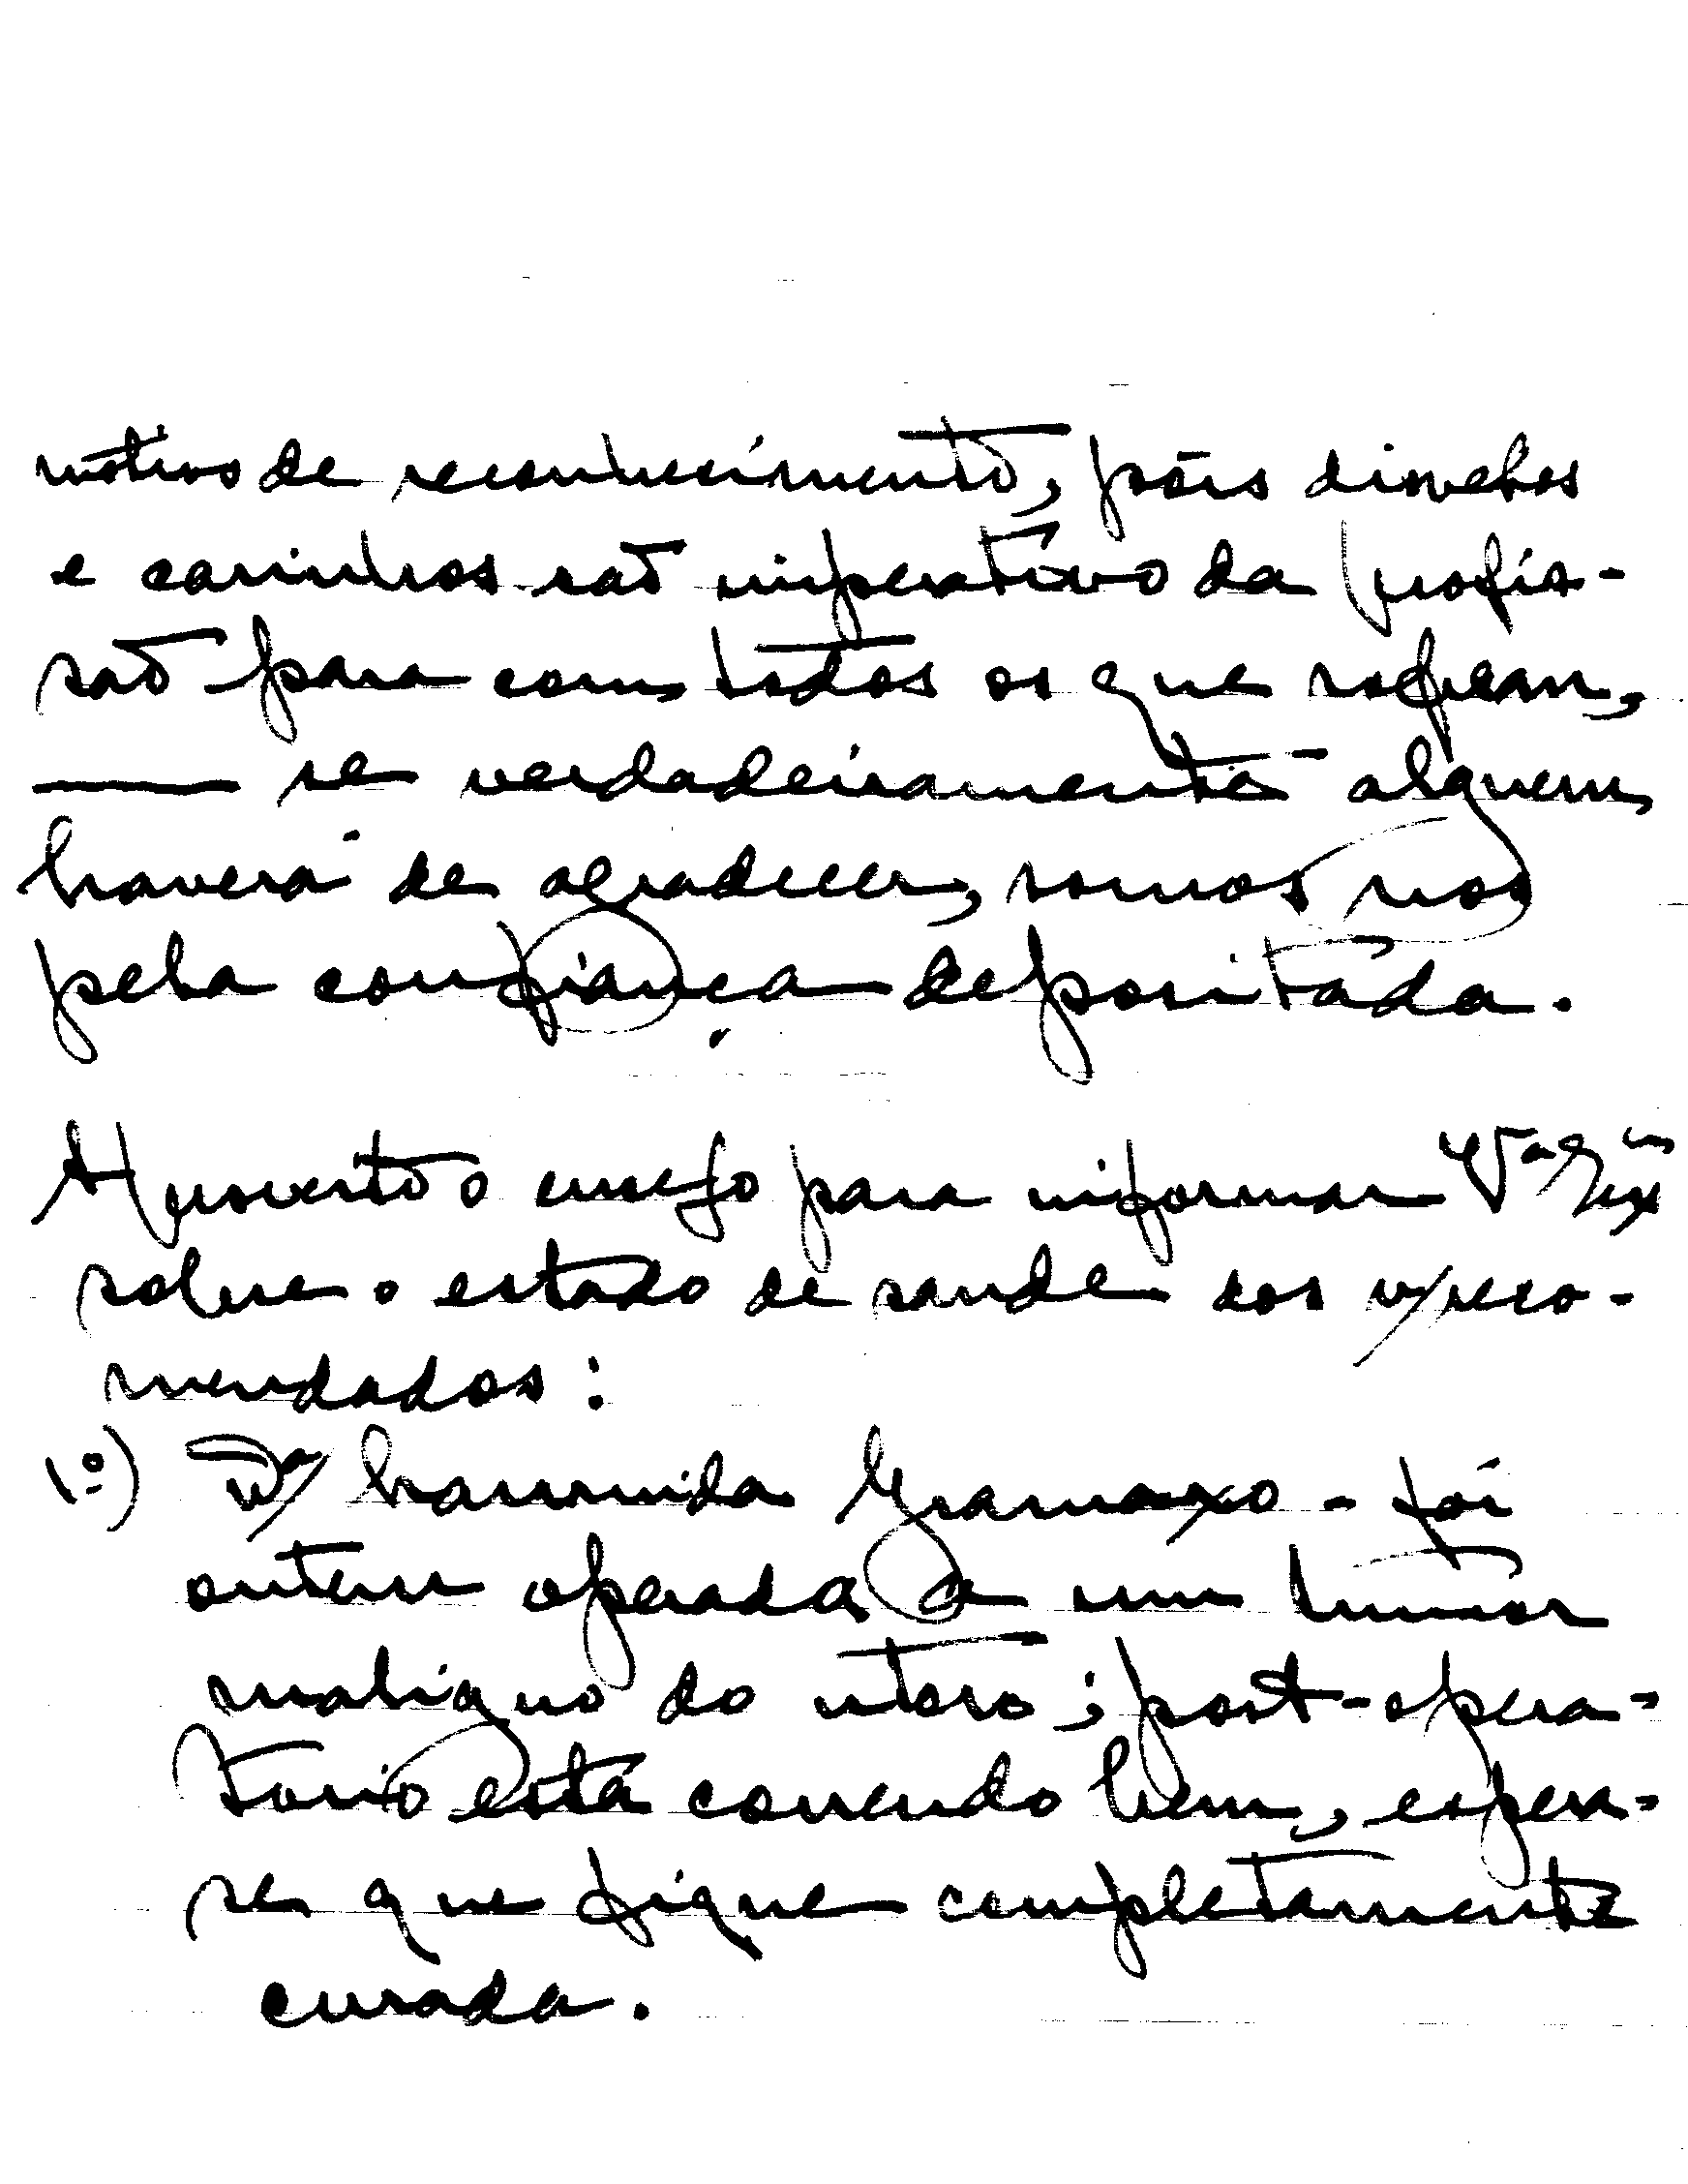 motivos de reconhecimento, pois disvelos
e carinhos são imperativo da profis-
são para com todos os que sofrem,
— se verdadeiramente alguem
haverá de agradecer, somos nos
pela confiança depositada.
Aproveito o ensejo para informar Vª Exª
sobre o estado de saude dos v/reco-
mendados:
1º) Dª Gramaxo - foi
ontem operada a um tumor
maligno do utero; post-opera-
torio está correndo bem, espera-
se que fique completamente
curada.